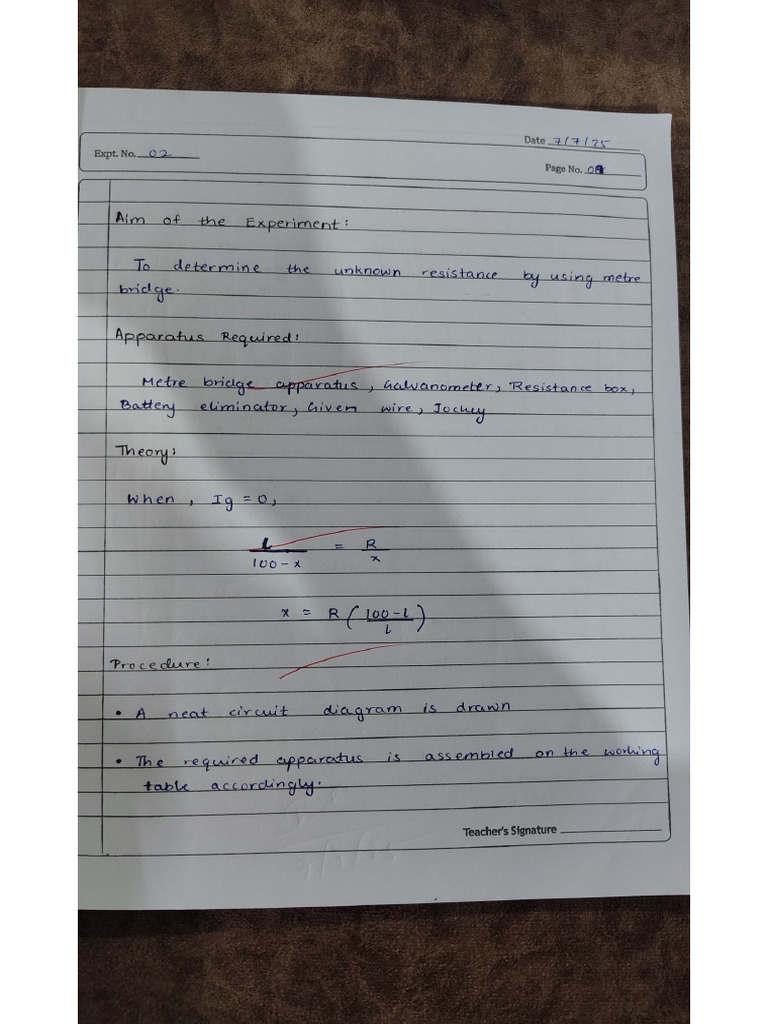 Date 7/7/25
Expt. No. 02
Page No.
Aim of the Experiment:
To determine the unknown resistance by using metre
bridge.
Apparatus Required:
Metre bridge apparatus, Galvanometer, Resistance box,
Battery eliminator, Given wire, Jockey
Theory:
When, Ig = 0,
l/(100-x) = R/x
x = R((100-l)/l)
Procedure:
• A neat circuit diagram is drawn
• The required apparatus is assembled on the working
table accordingly.
Teacher's Signature